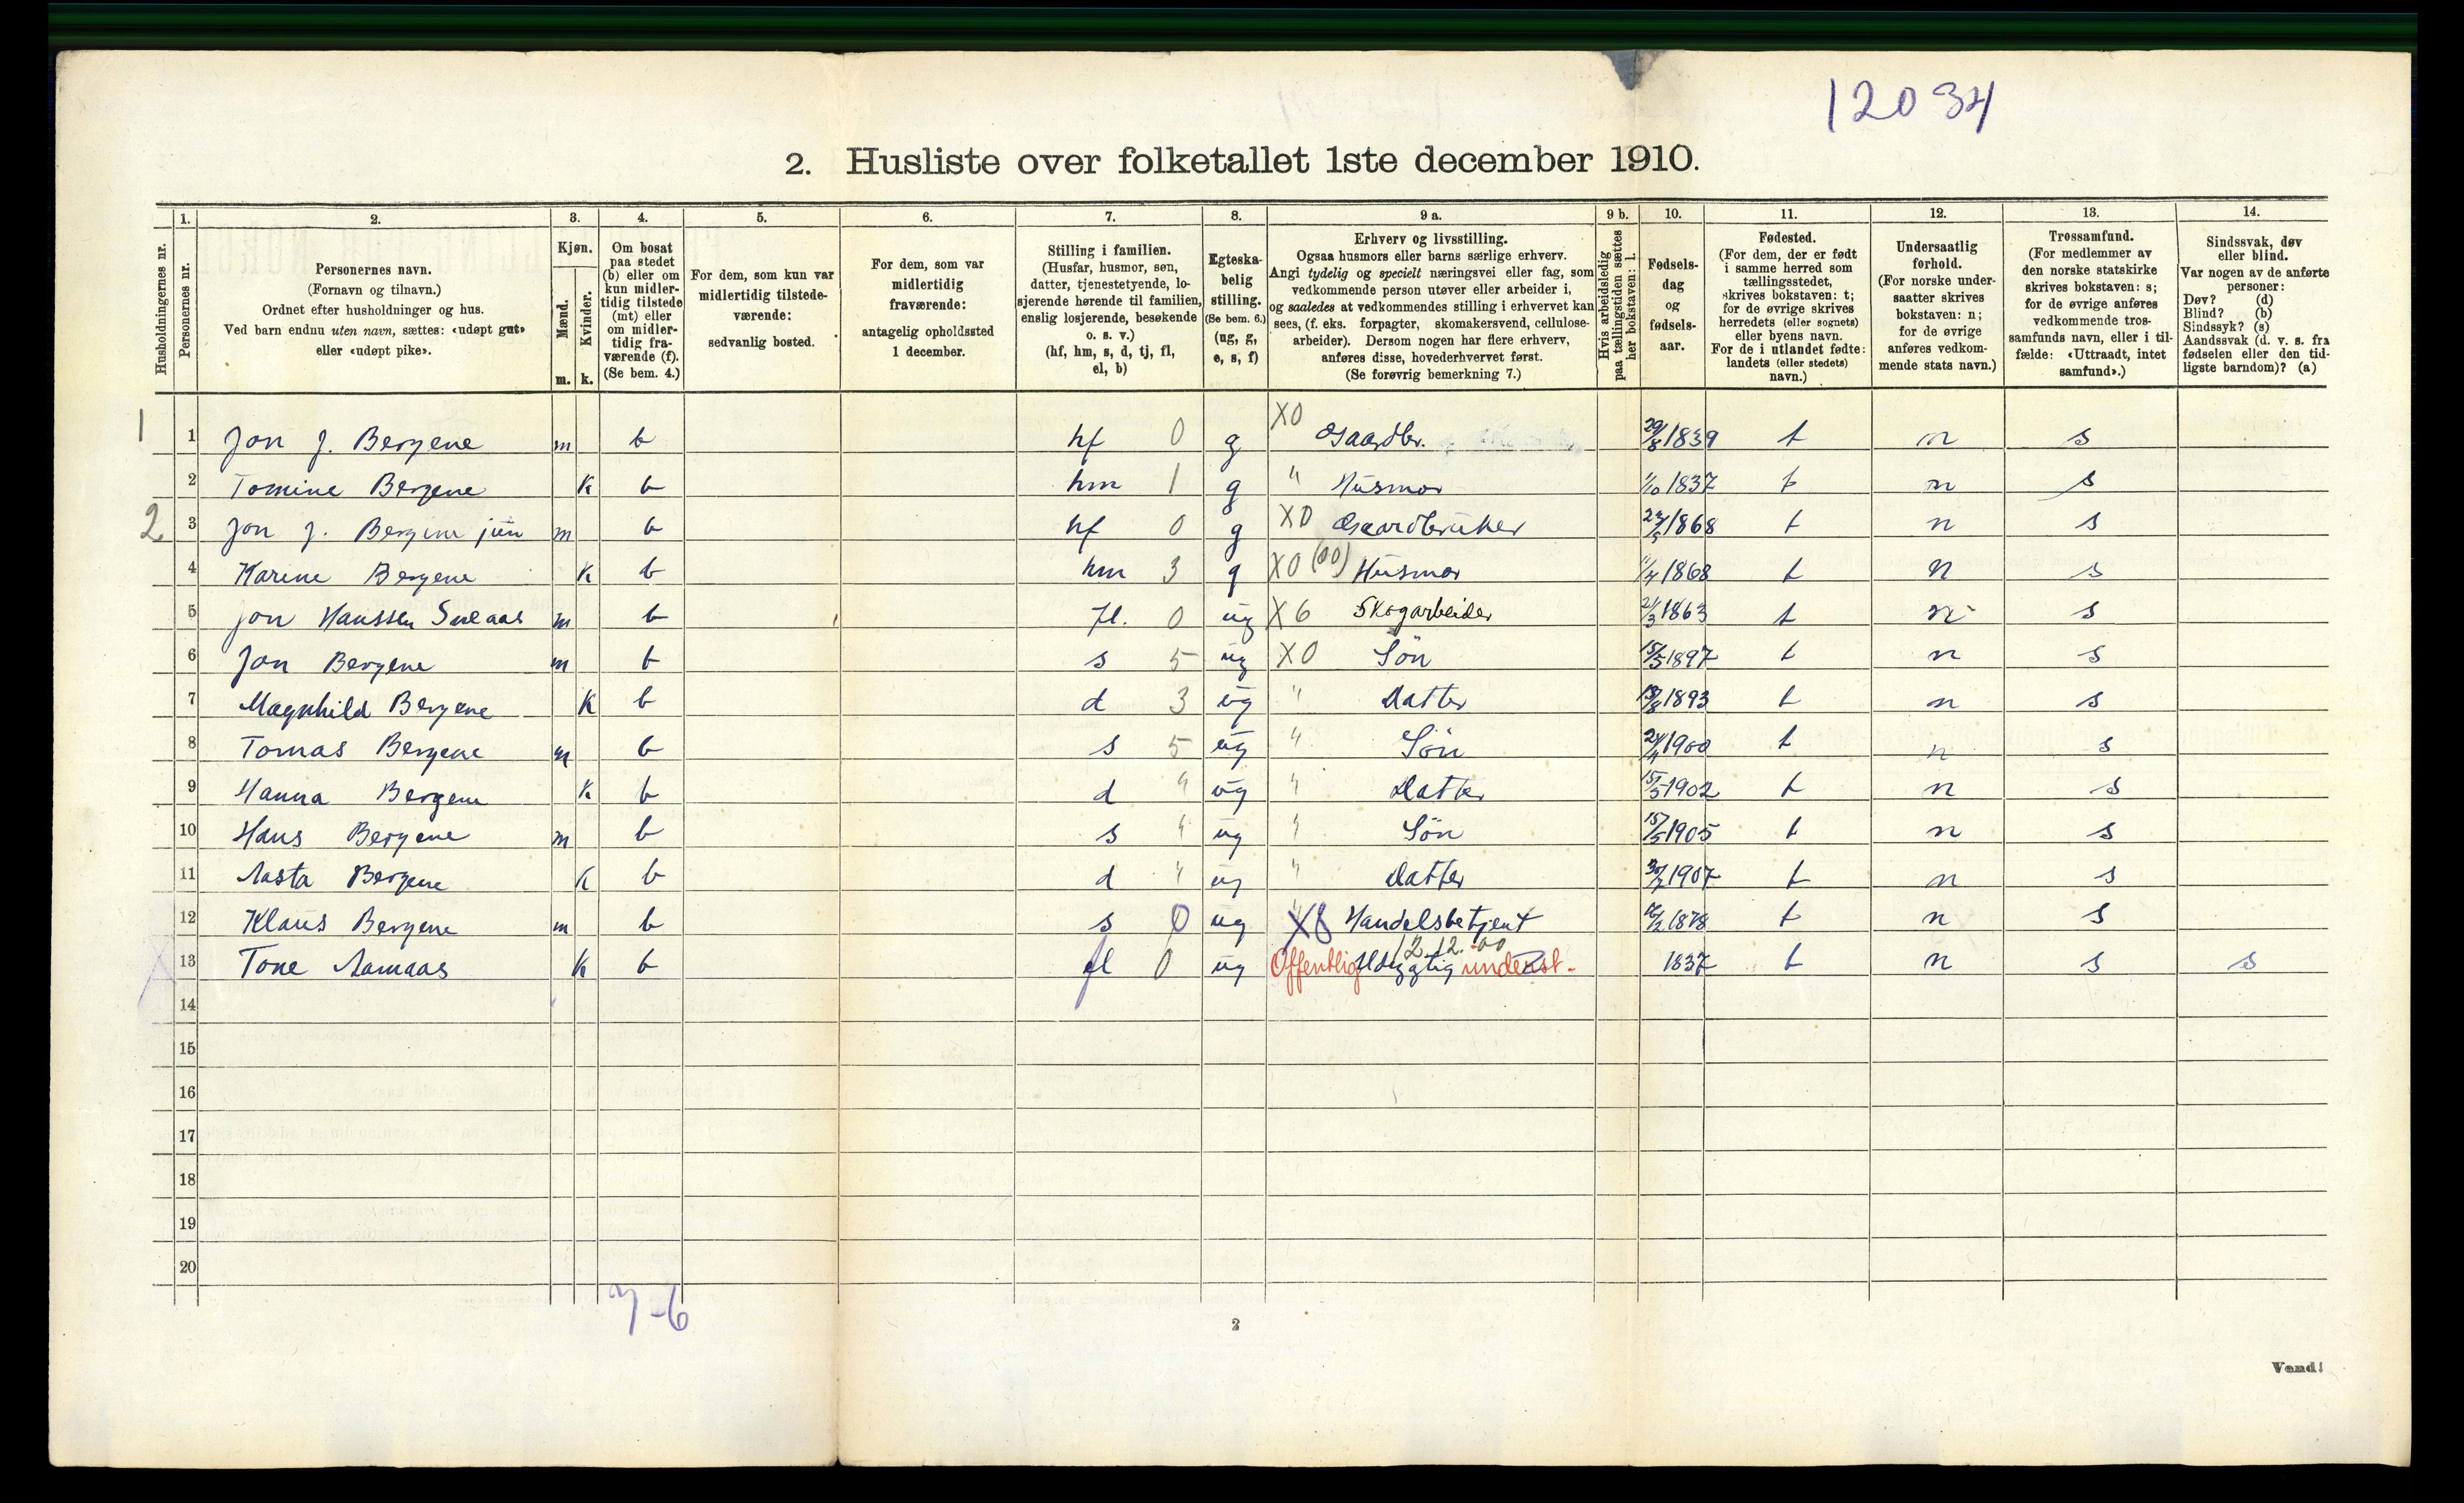 12034
2. Husliste over folketallet 1ste december 1910.
Husholdningernes nr.
1. Personernes nr.
2. Personernes navn.
(Fornavn og tilnavn.)
Ordnet efter husholdninger og hus.
Ved barn endnu uten navn, sættes: «udøpt gut»
eller «udøpt pike».
3. Kjøn.
Mænd. m.
Kvinder. k.
4. Om bosat
paa stedet
(b) eller om
kun midler-
tidig tilstede
(mt) eller
om midler-
tidig fra-
værende (f).
(Se bem. 4.)
5. For dem, som kun var
midlertidig tilstede-
værende:
sedvanlig bosted.
6. For dem, som var
midlertidig
fraværende:
antagelig opholdssted
1 december.
7. Stilling i familien.
(Husfar, husmor, søn,
datter, tjenestetyende, lo-
sjerende hørende til familien,
enslig losjerende, besøkende
o. s. v.)
(hf, hm, s, d, tj, fl,
el, b)
8. Egteska-
belig
stilling.
(Se bem. 6.)
(ug, g,
e, s, f)
9 a. Erhverv og livsstilling.
Ogsaa husmors eller barns særlige erhverv.
Angi tydelig og specielt næringsvei eller fag, som
vedkommende person utøver eller arbeider i,
og saaledes at vedkommendes stilling i erhvervet kan
sees, (f. eks. forpagter, skomakersvend, cellulose-
arbeider). Dersom nogen har flere erhverv,
anføres disse, hovederhvervet først.
(Se forøvrig bemerkning 7.)
9 b. Hvis arbeidsledig
paa tællingstiden sættes
her bokstaven: l.
10. Fødsels-
dag
og
fødsels-
aar.
11. Fødested.
(For dem, der er født
i samme herred som
tællingsstedet,
skrives bokstaven: t;
for de øvrige skrives
herredets (eller sognets)
eller byens navn.
For de i utlandet fødte:
landets (eller stedets)
navn.)
12. Undersaatlig
forhold.
(For norske under-
saatter skrives
bokstaven: n;
for de øvrige
anføres vedkom-
mende stats navn.)
13. Trossamfund.
(For medlemmer av
den norske statskirke
skrives bokstaven: s;
for de øvrige anføres
vedkommende tros-
samfunds navn, eller i til-
fælde: «Uttraadt, intet
samfund».)
14. Sindssvak, døv
eller blind.
Var nogen av de anførte
personer:
Døv? (d)
Blind? (b)
Sindssyk? (s)
Aandssvak (d. v. s. fra
fødselen eller den tid-
ligste barndom)? (a)
1 1 Jon J. Bergene m b hf 0 g X0 Gaardbr. 29/8 1839 t n s
2 Tomine Bergene K b hm 1 g " Husmor 1/10 1837 t n s
2 3 Jon J. Bergene jun m b hf 0 g X0 Gaardbruker 1868 t n s
4 Karine Bergene K b hm 3 g X0 (00) Husmor 1868 t n s
5 Jon Hanssen m b fl. 0 ug X6 Skogarbeider 1863 t n s
6 Jon Bergene m b s 5 ug X0 Søn 15/5 1897 t n s
7 Magnhild Bergene K b d 3 ug " Datter 1893 t n s
8 Tomas Bergene m b s 5 ug " Søn 1900 t n s
9 Hanna Bergene K b d " ug " Datter 15/5 1902 t n s
10 Hans Bergene m b s " ug " Søn 15/5 1905 t n s
11 Aasta Bergene K b d " ug " Datter 1907 t n s
12 Klaus Bergene m b s 0 ug Handelsbetjent 1878 t n s
12.12.00
13 Tone Aamaas K b fl 0 ug Offentlig underst. 1837 t n s s
14
15
16
17
18
19
20
7-6
2
Vend!